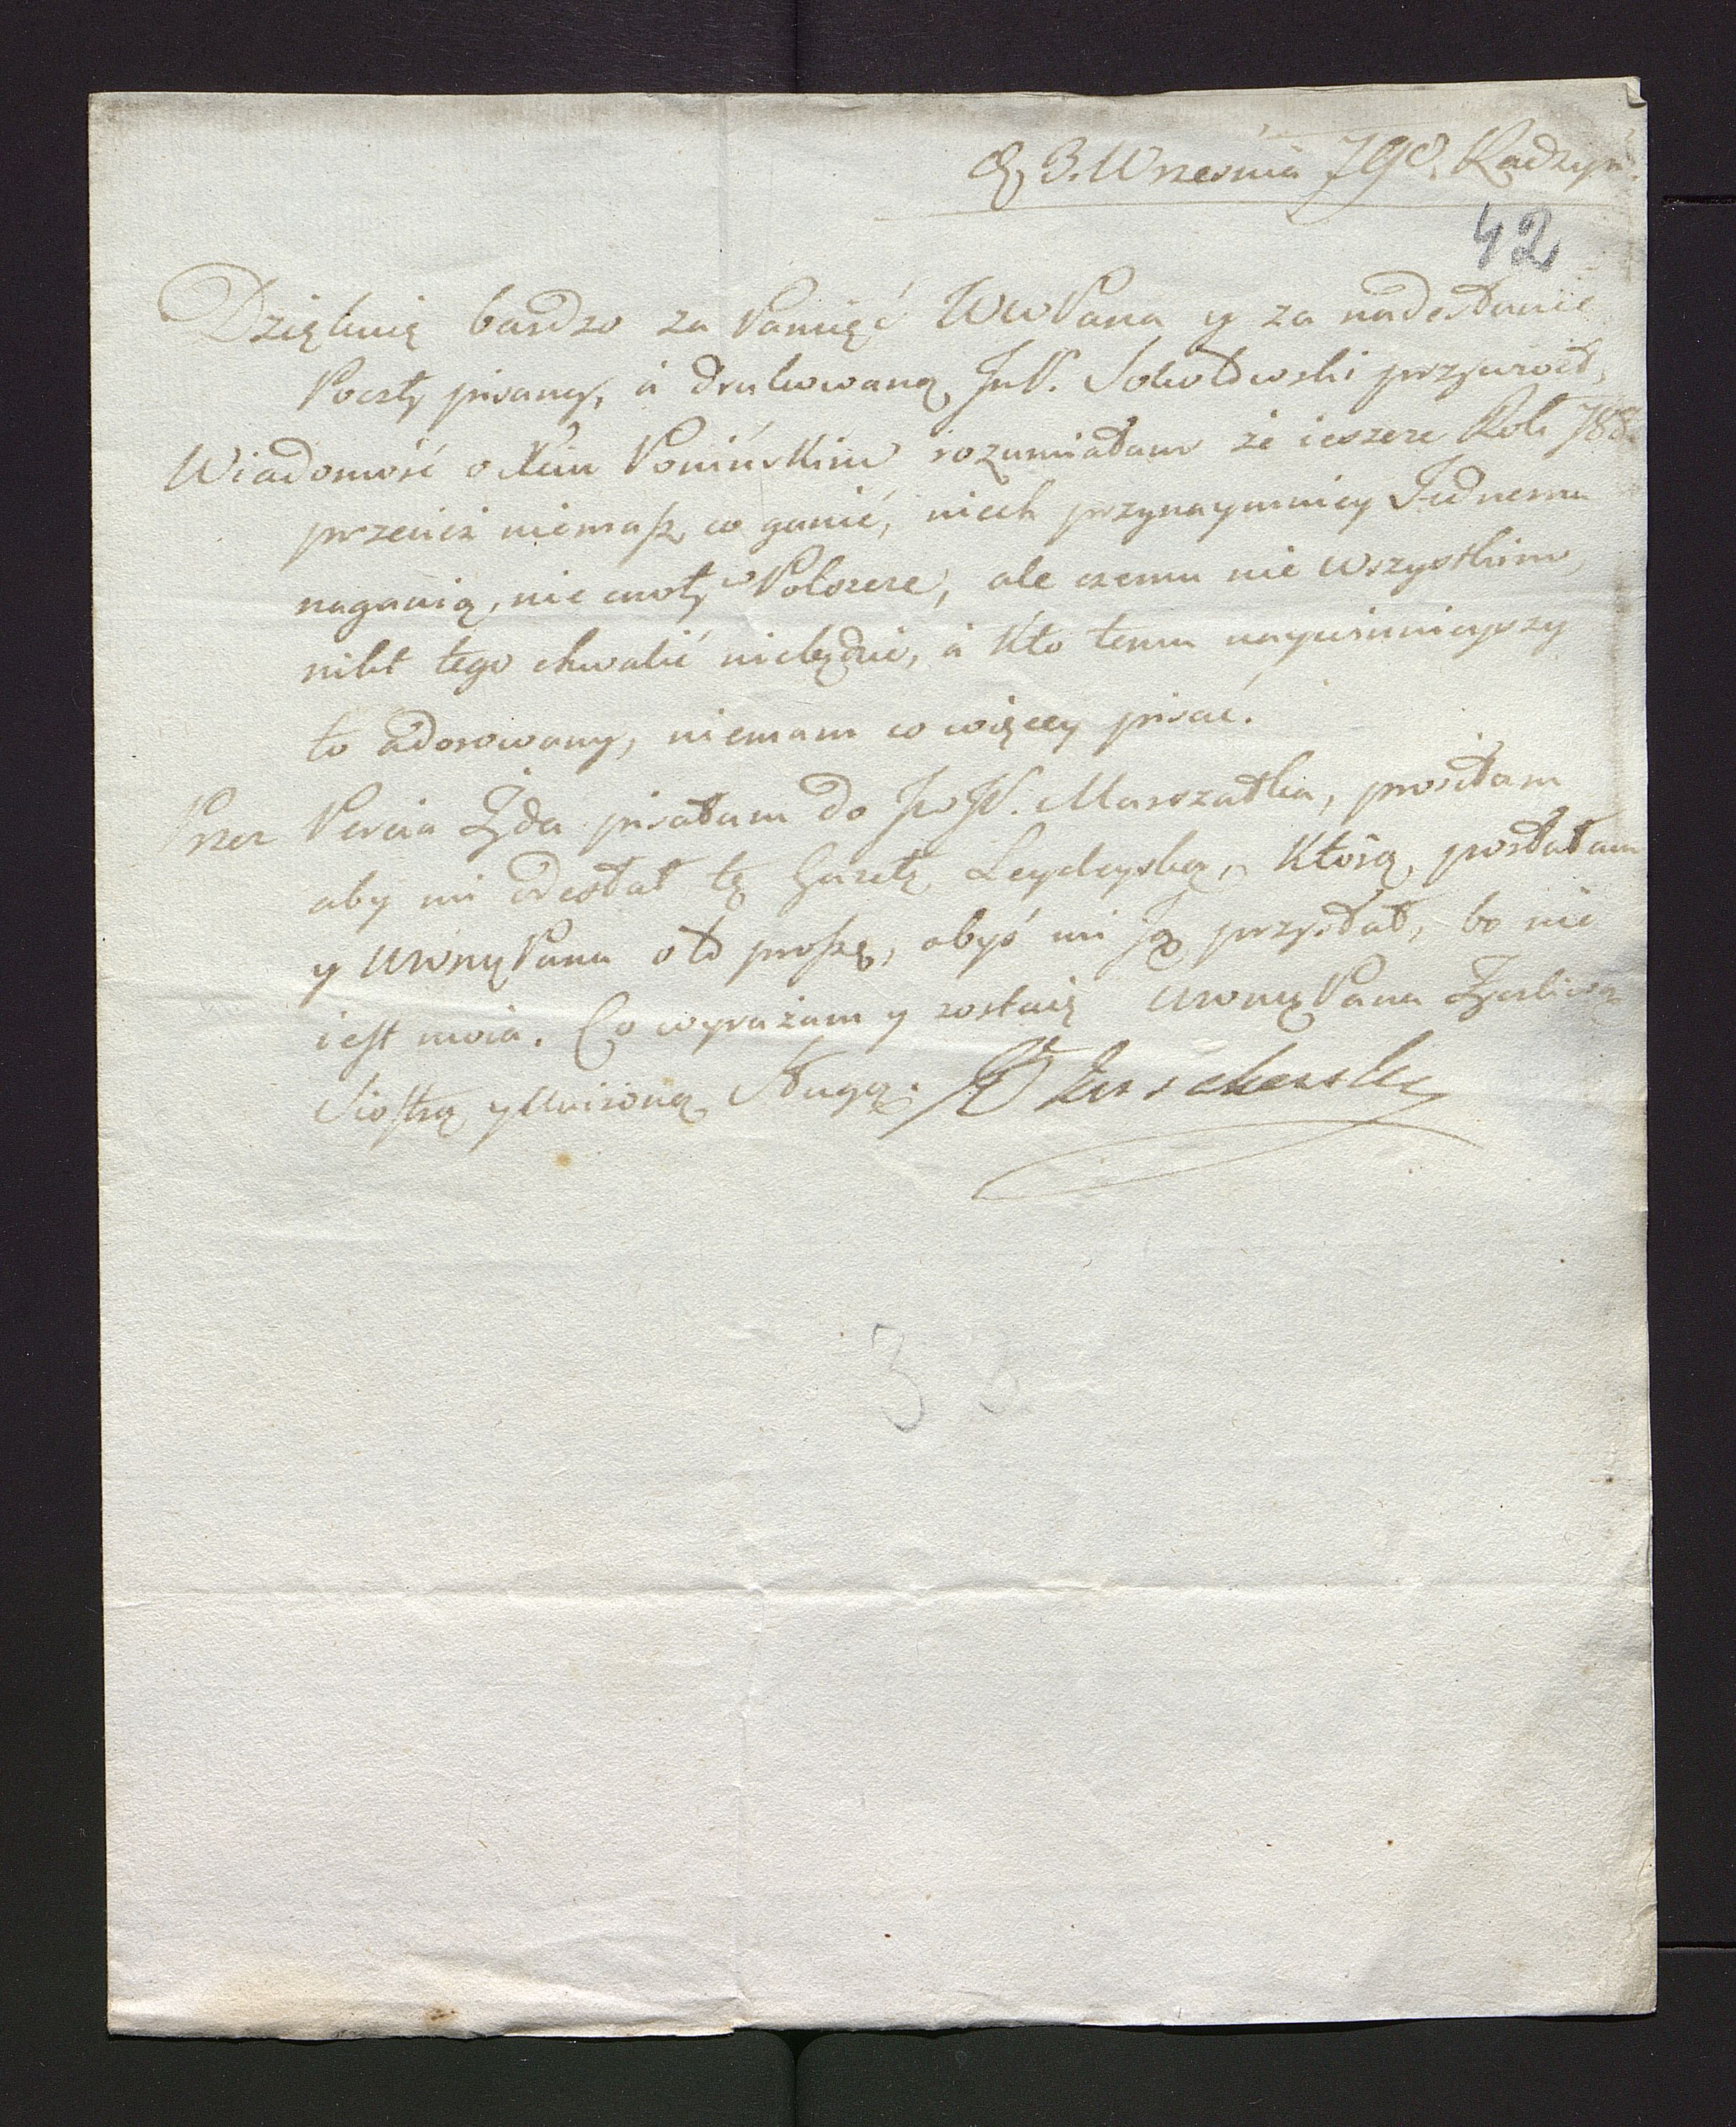 3. Wrzesnia 790. Radzyń.
42
Dziękuię bardzo za Pamięć WWPana y za nadesłanie
Poczty pisaney, á drukowaną JmP. Sokołowski przywiózł,
Wiadomość o Xciu Ponińskim rozumiałam że ieszcze Rok 788.
przecież niemasz co ganić, niech przynaymniey Jednemu
naganią, nie cnoty Polszcze, ale czemu nie wszystkim,
nikt tego chwalić niebędzie, á Kto temu
to adorowany, niemam co więcey pisać.
Przez Żyda pisałam do JWP. Marszałka, prosiłam
aby mi odesłał tę Gazetę Leydeyską, Którą posłałam
y UWmęPana oto proszę, abyś mi Ją przysłał, bo nie
iest moia. Co wyrażam y zostaię UWmęPana Życzliwą
Siostrą y Uniżoną Sługą.
3